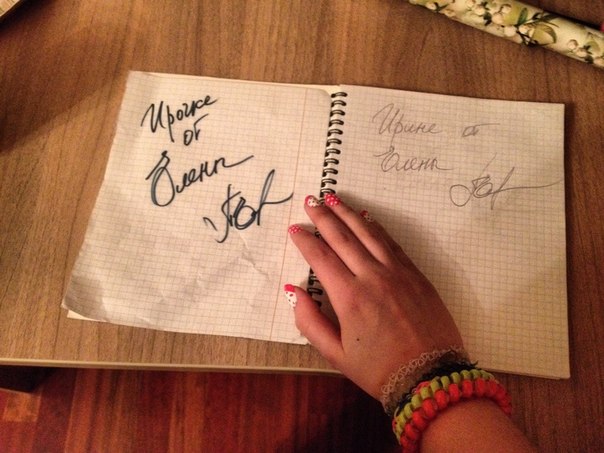 Ирочке
от
Елены
Ирине от
Елены